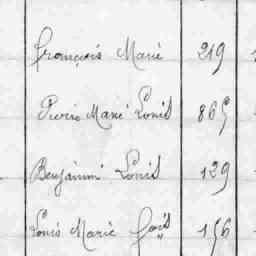 François Marie 219
Pierre Marie Louis 865
Benjamin Louis 129
Louis Marie 156